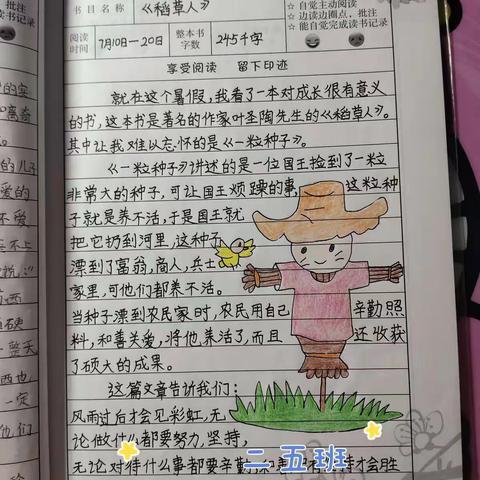 书目名称 《稻草人》
☆ 自觉主动阅读
☆ 边读边圈点，批注
☆ 能自觉完成读书记录
阅读时间 7月10日—20日 整本书字数 245千字
享受阅读 留下印迹
就在这个暑假，我看了一本对成长很有意义
的书，这本书是著名的作家叶圣陶先生的《稻草人》。
其中让我难以忘怀的是《一粒种子》。
《一粒种子》讲述的是一位国王捡到了一粒
非常大的种子，可让国王烦躁的事，这粒种
子就是养不活，于是国王就
把它扔到河里，这种子
漂到了富翁，商人，兵士
家里，可他们都养不活。
当种子漂到农民家时，农民用自己辛勤照
料，和善关爱，将他养活了，而且还收获
了硕大的成果。
这篇文章告诉我们：
风雨过后才会见彩虹，无
论做什么都要努力，坚持，
无论对待什么事都要辛勤
才会胜
二五班